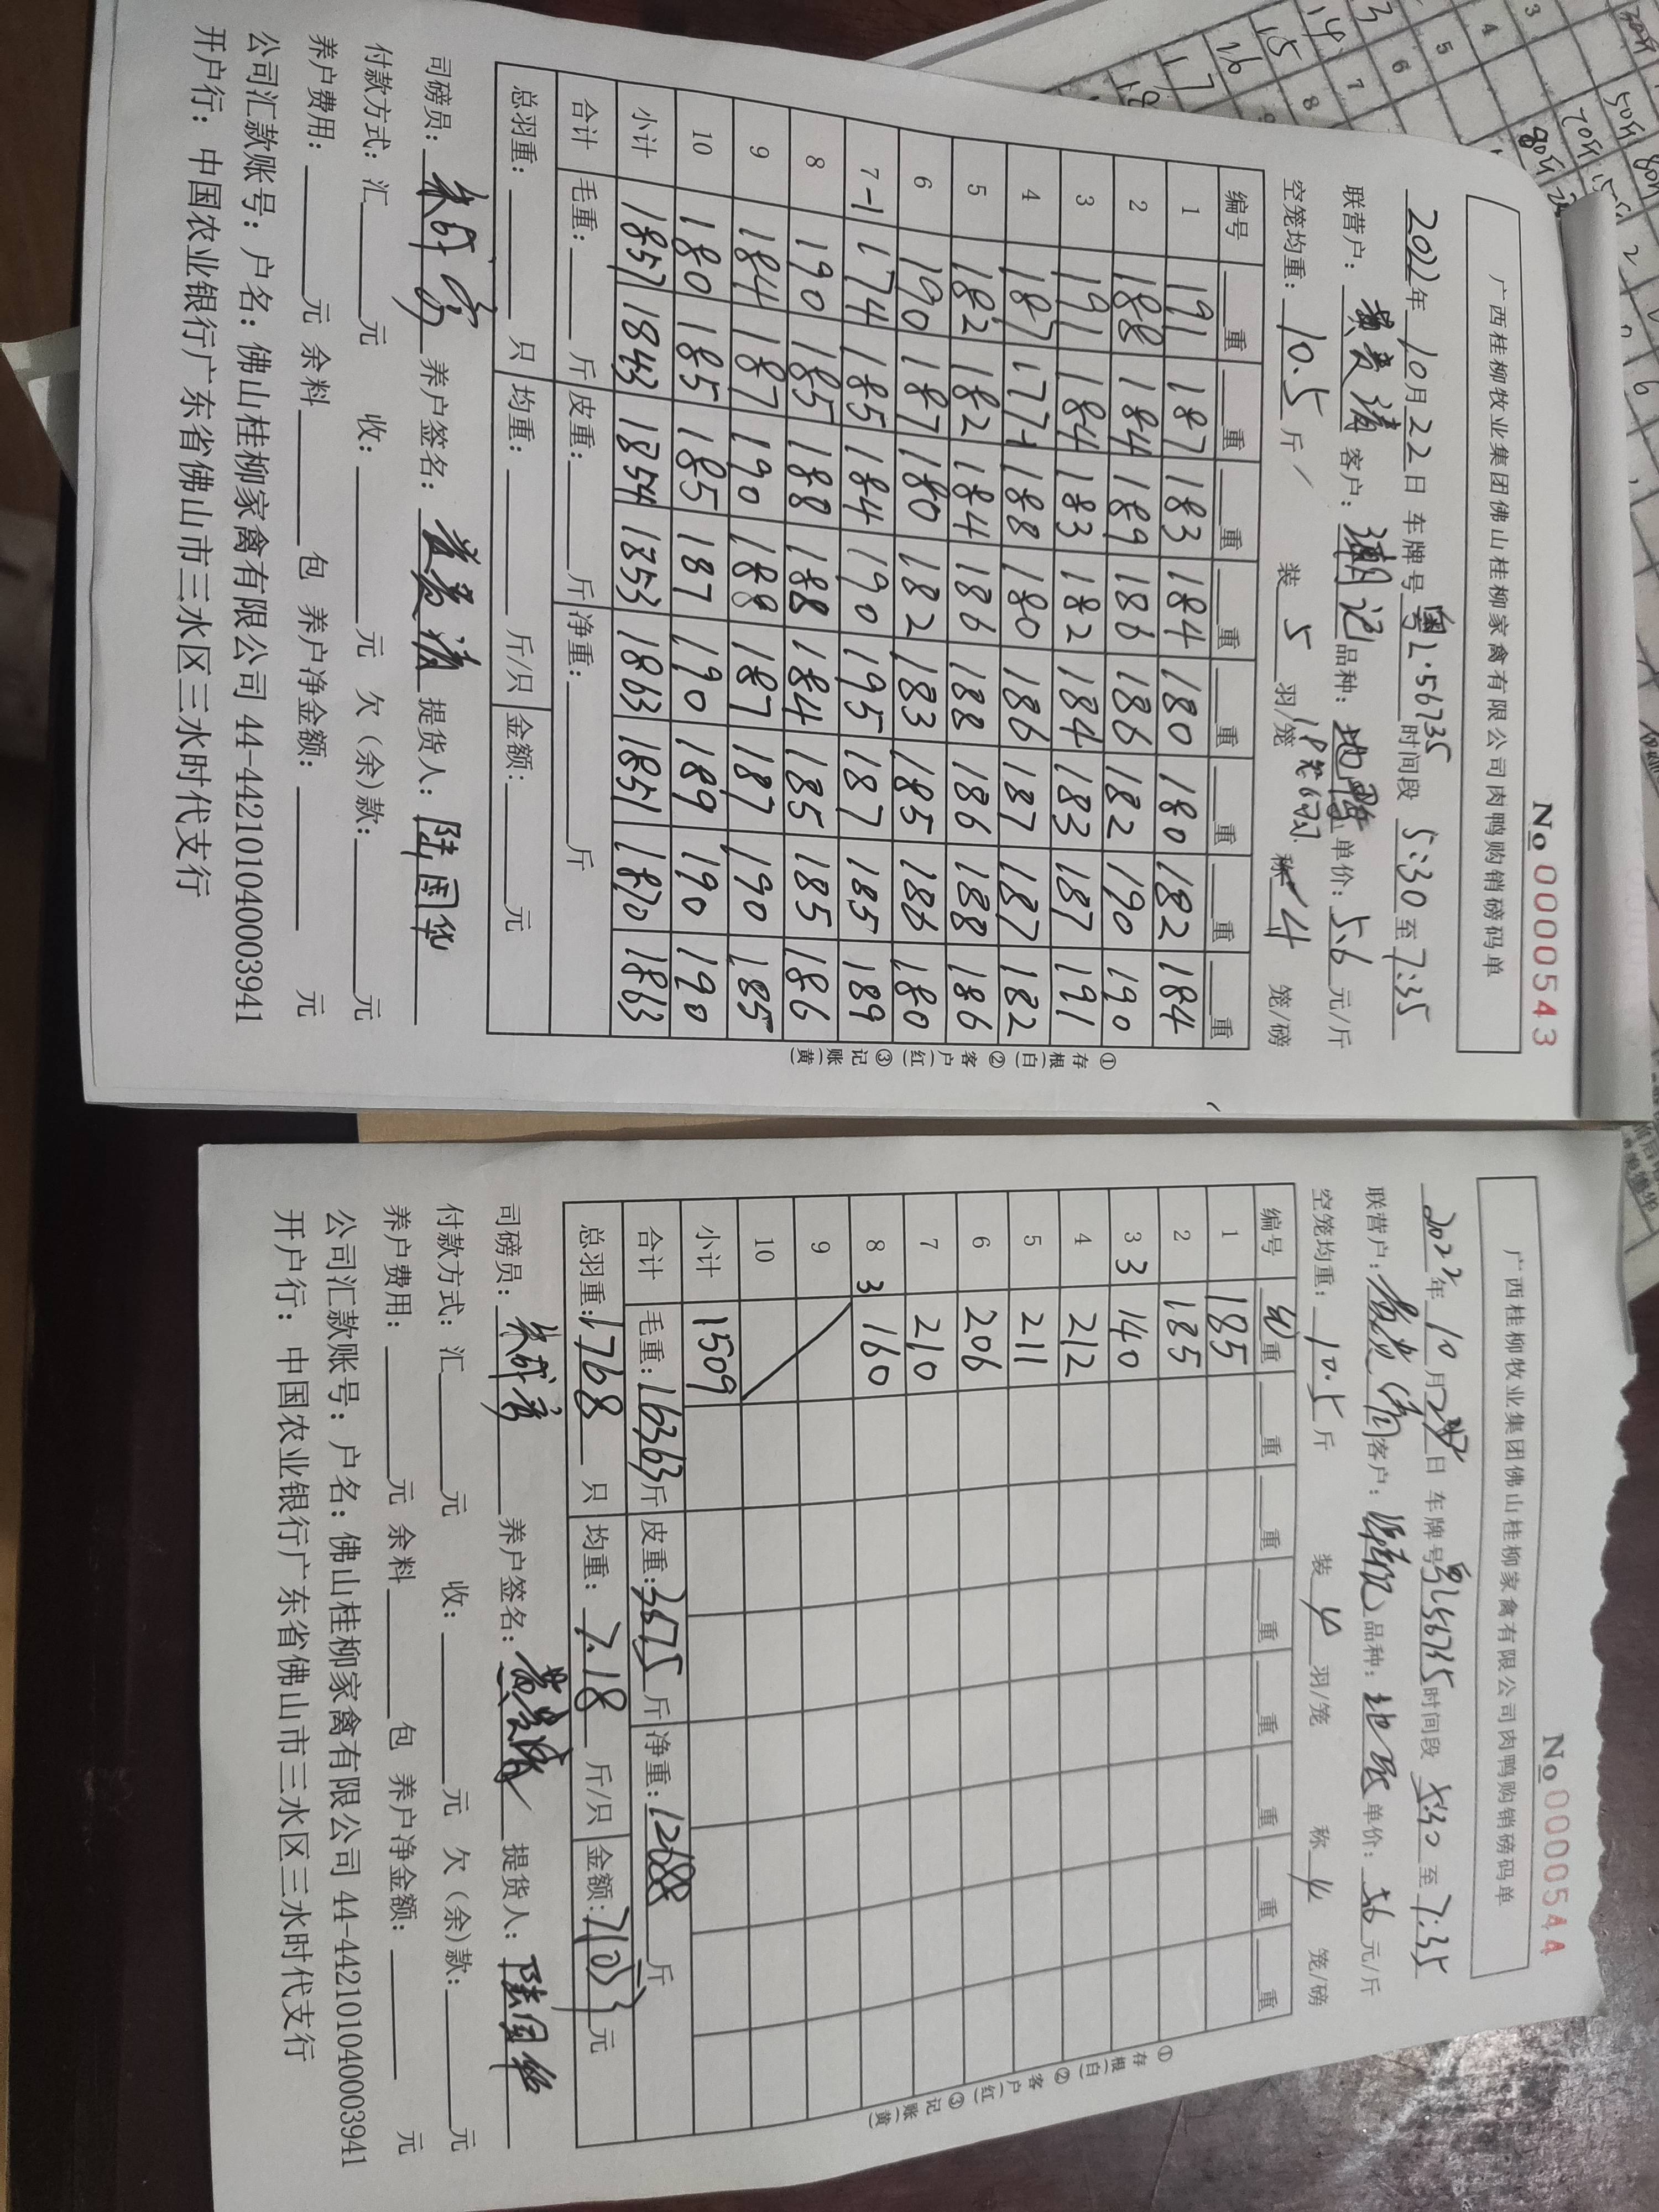 No 0000543
广西桂柳牧业集团佛山桂柳家禽有限公司肉鸭购销磅码单
2022年 10月 22日 车牌号 粤L·56735 时间段 5:30 至 7:35
联营户: 黄贵清 客户: 潮记 品种: 地鸭 单价: 5.6 元/斤
空笼均重: 10.5 斤 装 5 羽/笼 称 4 笼/磅
编号 重 重 重 重 重 重 重 重
1 191 187 183 184 180 180 182 184
2 188 184 189 186 186 182 190 190
3 191 184 183 182 184 183 187 191
4 187 177 188 180 186 187 187 182
5 182 182 184 186 188 186 188 186
6 190 187 180 182 183 185 186 180
7-1 174 185 184 190 195 187 185 189
8 190 185 188 188 184 185 185 186
9 184 187 190 188 187 187 190 185
10 180 185 185 187 190 189 190 190
小计 1857 1843 1854 1853 1863 1851 1870 1863
合计 毛重: 斤 皮重: 斤 净重: 斤
总羽重: 只 均重: 斤/只 金额: 元
司磅员: 养户签名: 黄贵清 提货人: 陆国华
付款方式: 汇 元 收: 元 欠(余)款: 元
养户费用: 元 余料 包 养户净金额: 元
公司汇款账号: 户名: 佛山桂柳家禽有限公司 44-442101040003941
开户行: 中国农业银行广东省佛山市三水区三水时代支行
①存根(白) ②客户(红) ③记账(黄)
No 0000544
广西桂柳牧业集团佛山桂柳家禽有限公司肉鸭购销磅码单
2022年 10月 22日 车牌号 粤L56735 时间段 5:30 至 7:35
联营户: 黄贵清 客户: 潮记 品种: 地鸭 单价: 5.6 元/斤
空笼均重: 10.5 斤 装 4 羽/笼 称 4 笼/磅
编号 重 重 重 重 重 重 重 重
1 185
2 185
3 3 140
4 212
5 211
6 206
7 210
8 3 160
9
10
小计 1509
合计 毛重: 16363 斤 皮重: 3675 斤 净重: 12688 斤
总羽重: 1768 只 均重: 7.18 斤/只 金额: 71053 元
司磅员: 养户签名: 黄贵清 提货人: 陆国华
付款方式: 汇 元 收: 元 欠(余)款: 元
养户费用: 元 余料 包 养户净金额: 元
公司汇款账号: 户名: 佛山桂柳家禽有限公司 44-442101040003941
开户行: 中国农业银行广东省佛山市三水区三水时代支行
①存根(白) ②客户(红) ③记账(黄)